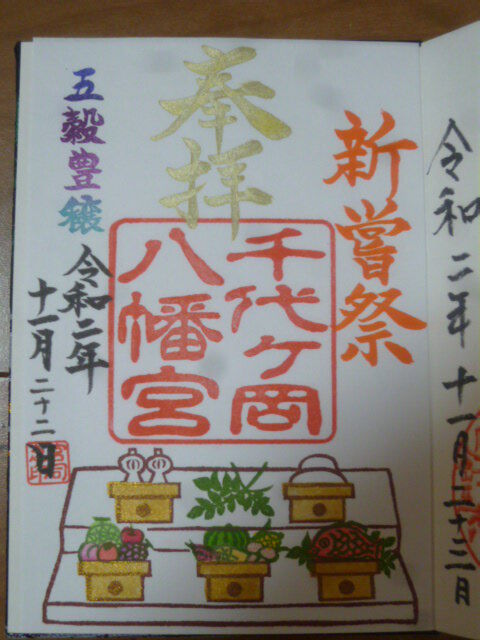 新嘗祭
奉拝
千代ケ岡
八幡宮
五穀豊穣
令和二年
十一月二十二日
令和二年十一月二十三日